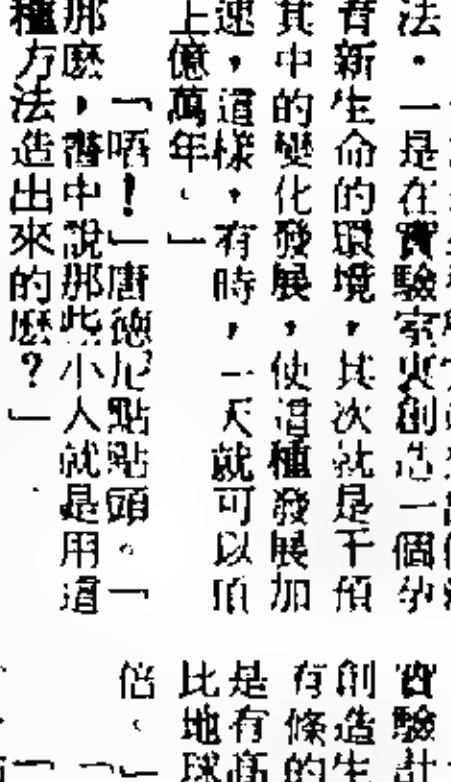 法・一是在實驗室裏創造一個孕
育新生命的環境，其次就是干預
其中的變化發展，使這種發展加
速，這樣，有時，一天就可以頂
上億萬年。」
「唔！」唐德尼點點頭。「
那麼，書中說那些小人就是用這
種方法造出來的麼？」
實驗計
創造生
有條的
是有高
比地球
倍。」